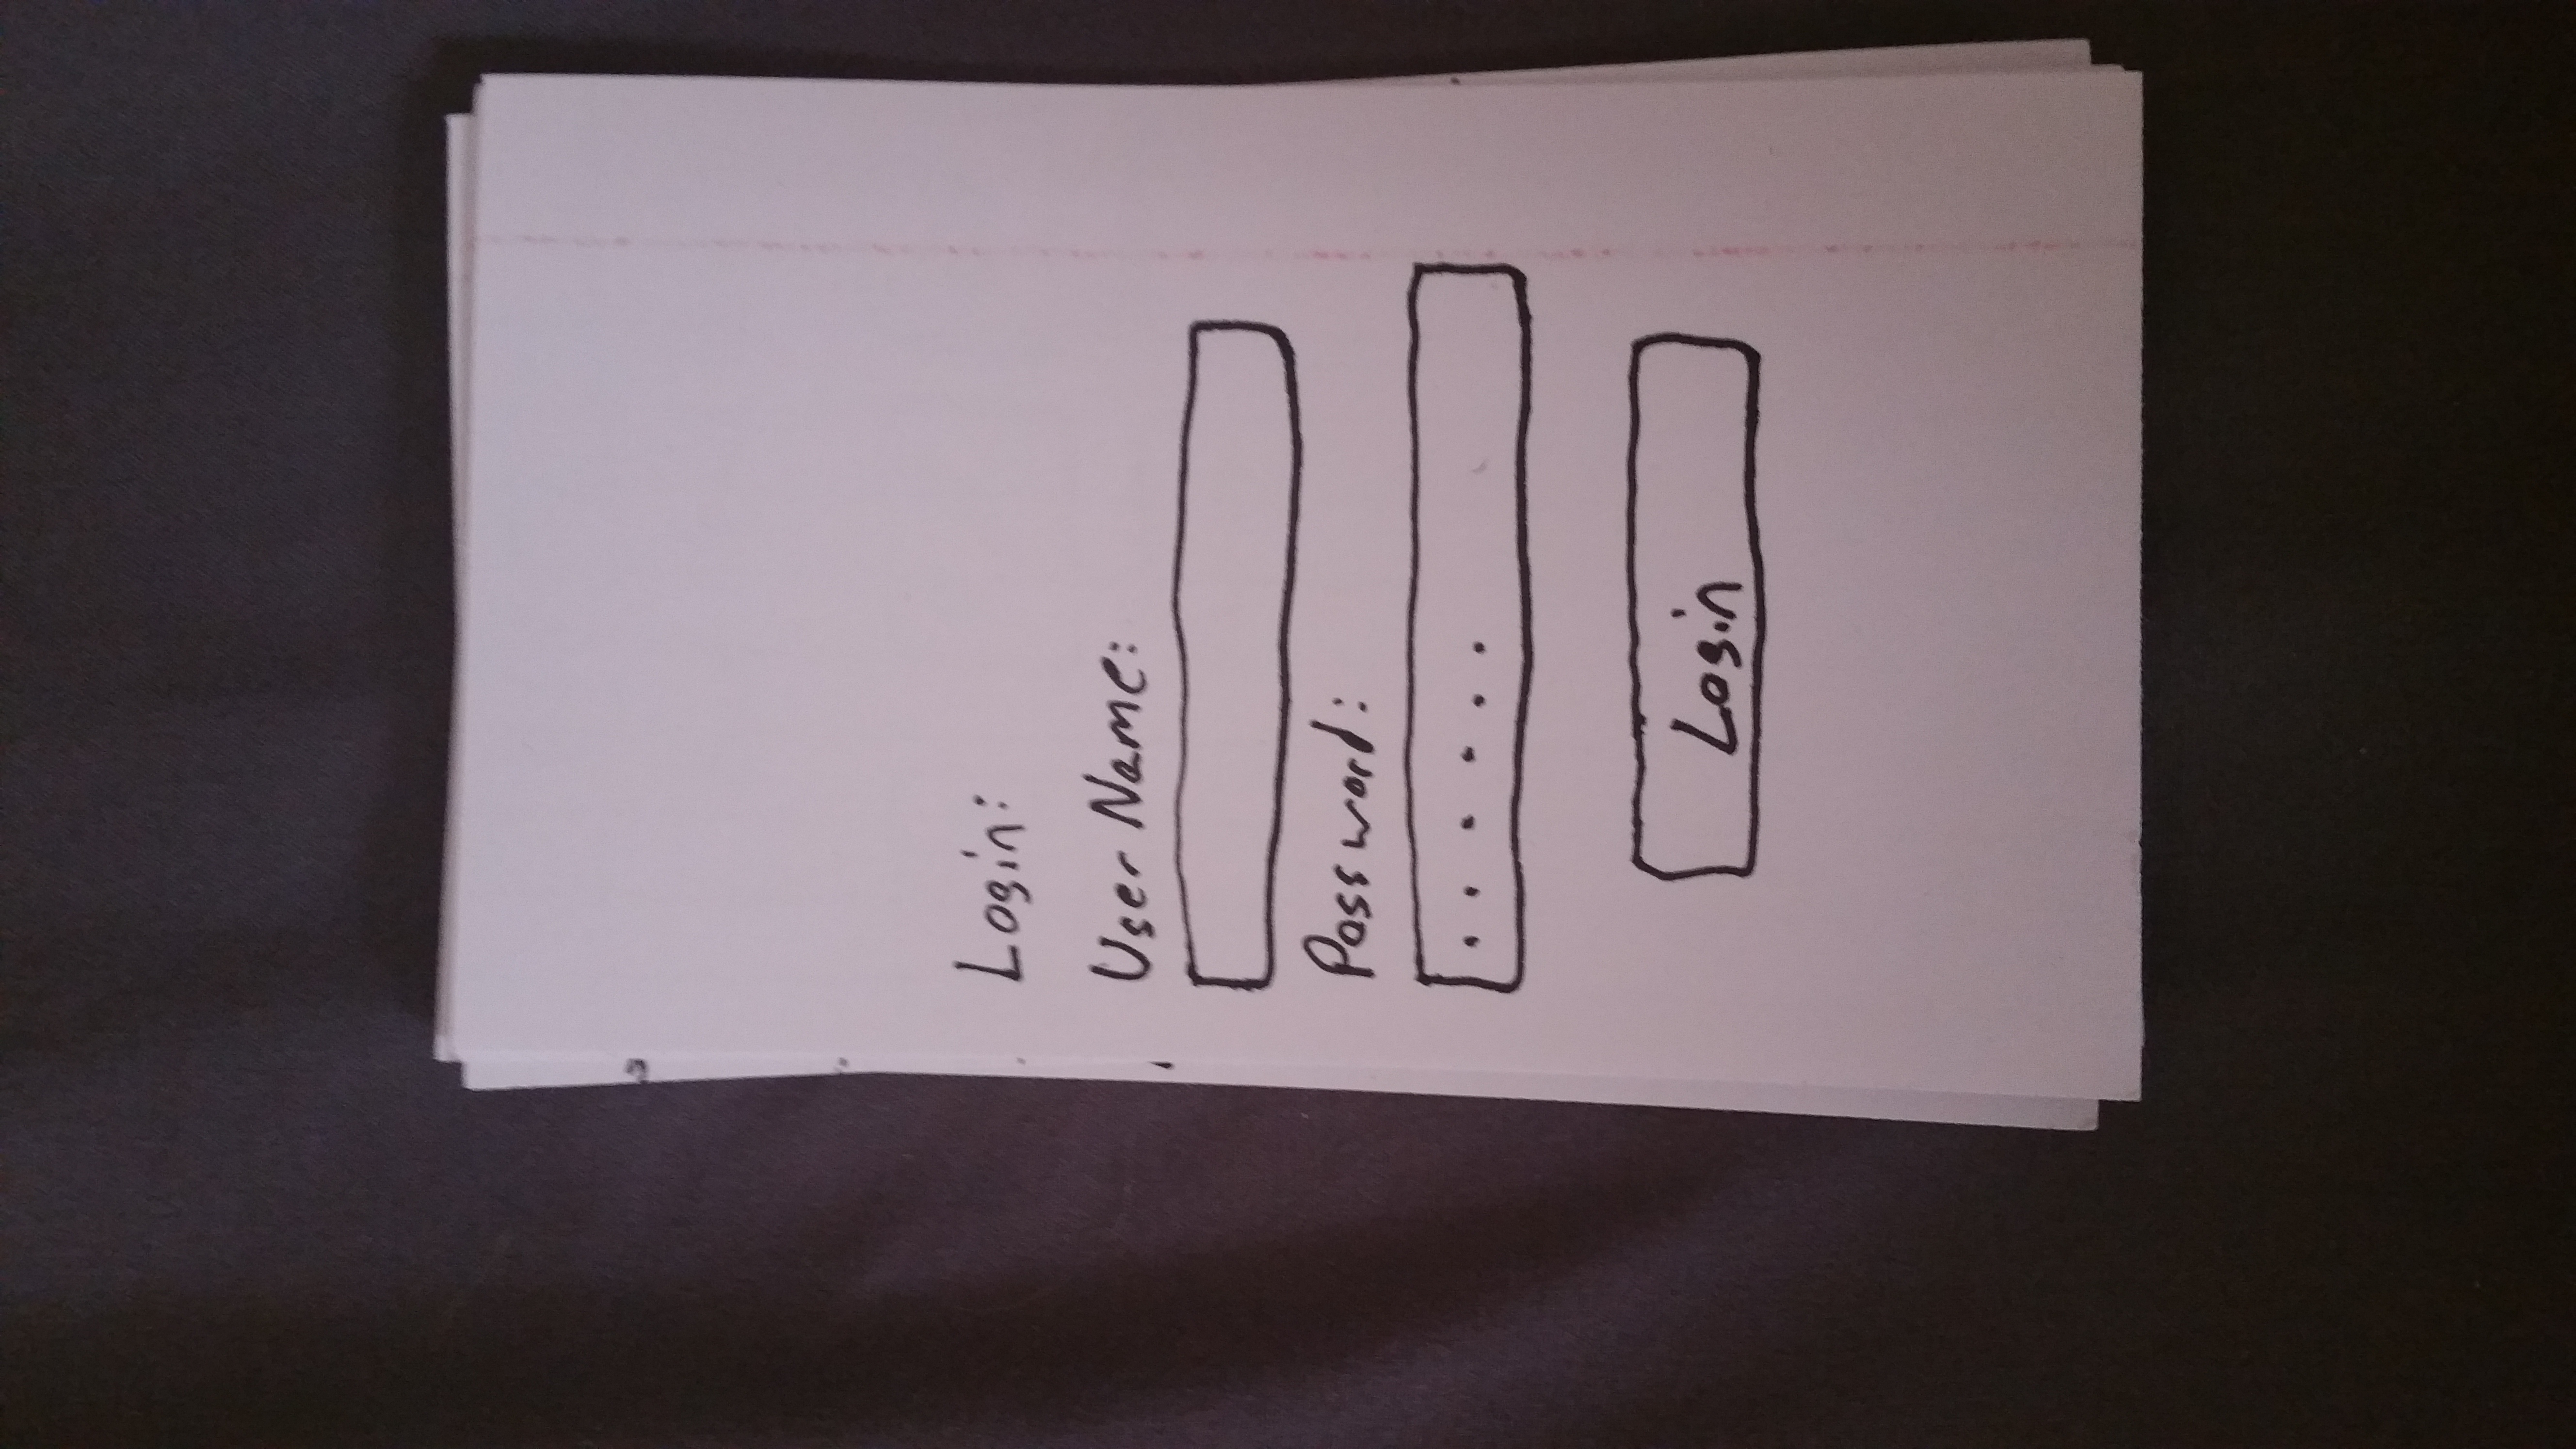 Login:
User Name:
Password:
......
Login